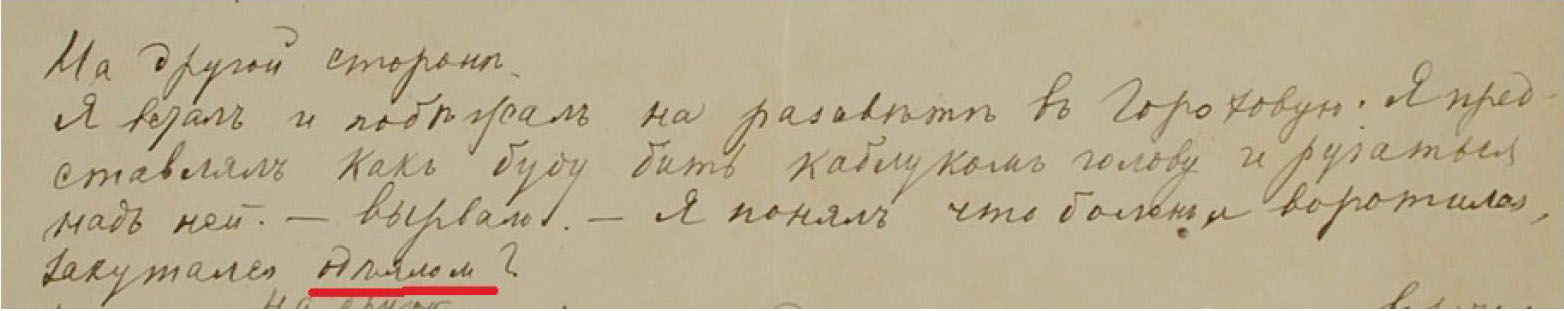 На другой сторонѣ.
Я всталъ и побѣжалъ на разсвѣтѣ въ Гороховую. Я пред-
ставлялъ какъ буду бить каблукомъ голову и ругаться
надъ ней. — вырвало. — Я понялъ что боленъ и воротился,
закутался одѣялом?